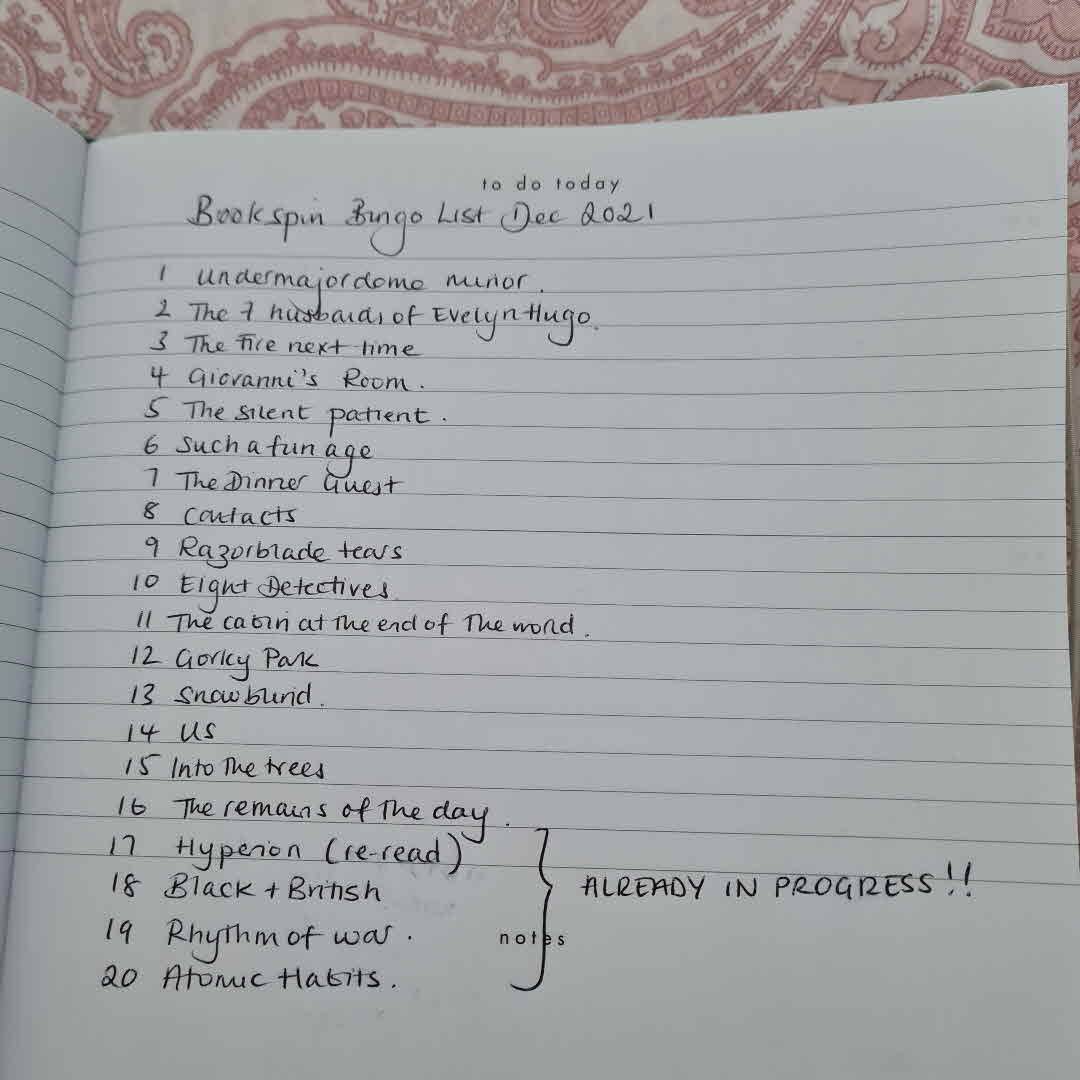 to do today
Bookspin Bingo List Dec 2021
1 Undermajordomo minor.
2 The 7 husbands of Evelyn Hugo.
3 The fire next time
4 Giovanni's Room.
5 The silent patient.
6 Such a fun age
7 The Dinner Guest
8 Contacts
9 Razorblade tears
10 Eight Detectives
11 The cabin at the end of The world.
12 Gorky Park
13 Snowblind.
14 Us
15 Into The trees
16 The remains of The day.
17 Hyperion (re-read)
18 Black + British
ALREADY IN PROGRESS!!
19 Rhythm of war.
notes
20 Atomic Habits.